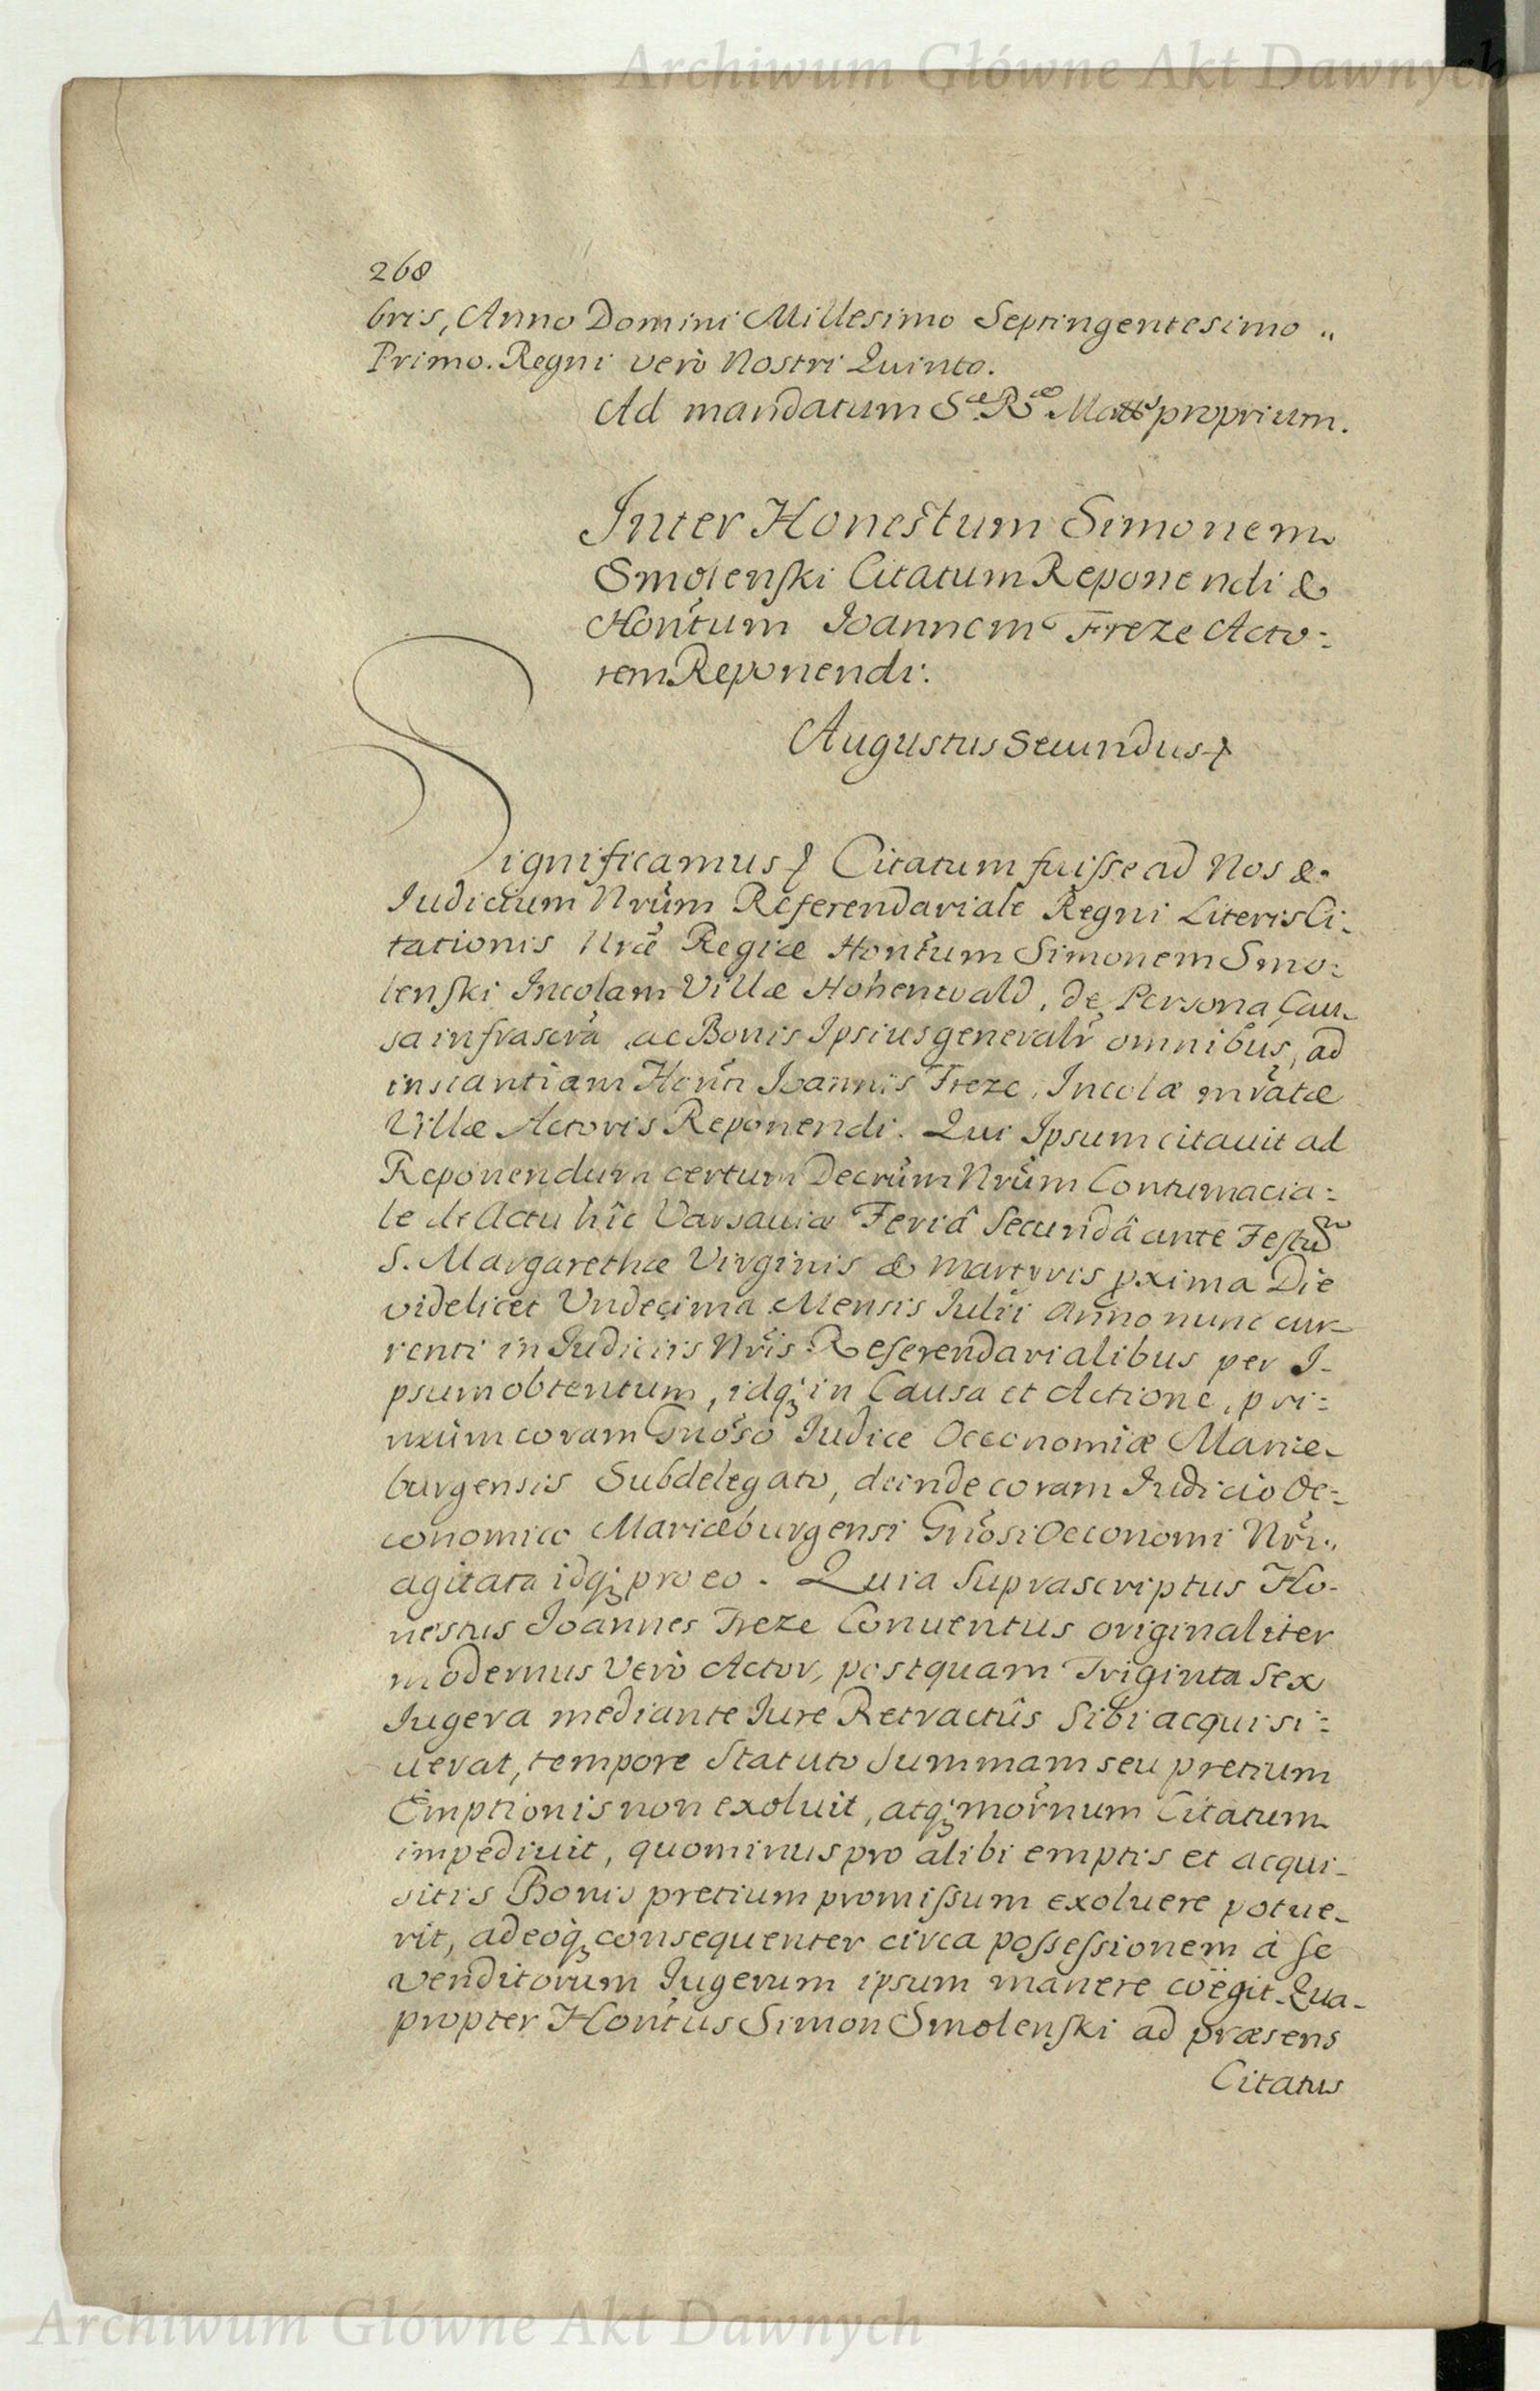 Archiwum Główne Akt Dawnych
268
bris, Anno Domini Millesimo Septingentesimo „
Primo. Regni verò Nostri Quinto.
Ad mandatum Sæ Ræ Mattis proprium.
Inter Honestum Simonem
Smolenſki Citatum Reponendi &
Hontum Ioannem Freze Acto:
rem Reponendi.
Augustus Secundus
Significamus Citatum fuiſse ad Nos &
Iudicium Nrũm Referendariale Regni Literis Ci-
tationis Nræ Regiæ Hontum Simonem Smo:
lenſki Incolam Villæ Hohenwald, de Persona, Cau-
sa infrascra ac Bonis Ipsius generalr omnibus, ad
instantiam Honti Ioannis Freze, Incolæ mratæ
Villæ Actoris Reponendi. Qui Ipsum citauit ad
Reponendum certum Decrum Nrum Contumacia:
le de Actu hîc Varsauiæ Feriâ Secundâ ante Festũ
S. Margarethæ Virginis & Martyris pxima Die
videlicet Undecima Mensis Iulii Anno nunc cur-
renti in Iudiciis Nris Referendarialibus per I-
psum obtentum, idq; in Causa et Actione, pri:
mùm coram Gnoso Iudice Oeconomiæ Mariæ-
burgensis Subdelegato, deinde coram Iudicio Oe:
conomico Mariæburgensi Gnosi Oeconomi Nri.,
agitata idq; pro eo. Quia Suprascriptus Ho-
nestus Ioannes Freze Conuentus originaliter
modernus verò Actor, postquam Triginta Sex
Iugera mediante Iure Retractûs Sibi acquisi:
uerat, tempore Statuto Summam seu pretium
Emptionis non exoluit, atq; mornum Citatum
impediuit, quominus pro alibi emptis et acqui-
sitis Bonis pretium promiſsum exoluere potue-
rit, adeoq; consequenter circa poſseſsionem à se
venditorum Iugerum ipsum manere coëgit. Qua-
propter Hontus Simon Smolenſki ad præsens
Citatus
Archiwum Główne Akt Dawnych